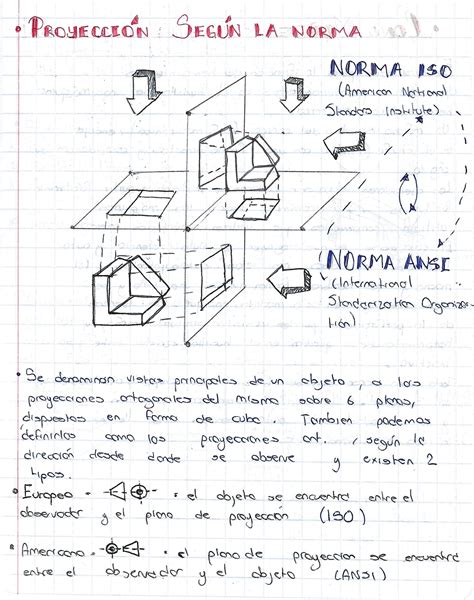 • PROYECCIÓN SEGÚN LA NORMA
NORMA ISO
(American National
Standars Institute)
NORMA ANSI
(International
Standarization Organiza-
tión)
• Se denominan vistas principales de un objeto, a las
proyecciones ortogonales del mismo sobre 6 planos,
dispuestos en forma de cubo. Tambien podemos
definirlas como las proyecciones ort. , según la
dirección desde donde se observe y existen 2
tipos.
• Europeo - : el objeto se encuentra entre el
observador y el plano de proyección (ISO)
• Americano - : el plano de proyeccion se encuentra
entre el observador y el objeto (ANSI)